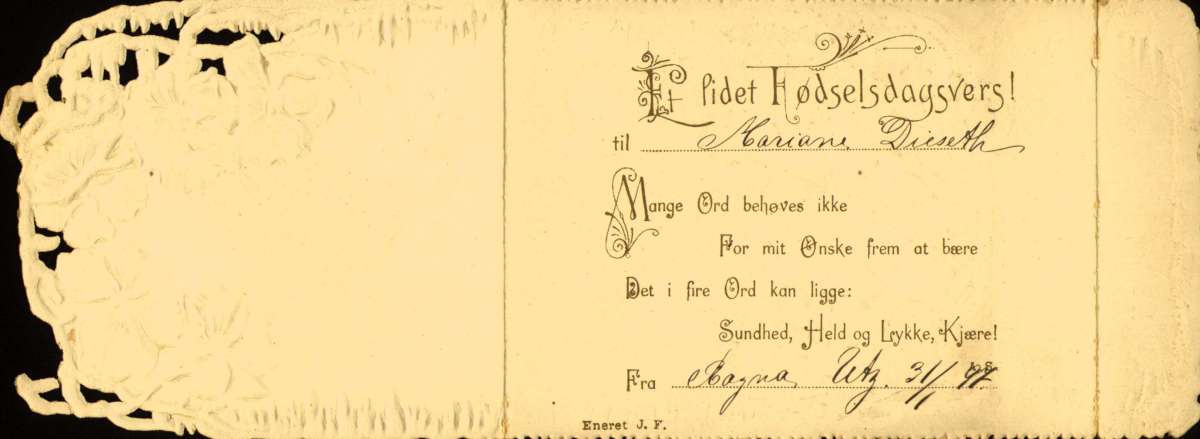 Et lidet Fødselsdagsvers!
til Mariane Dieseth
Mange Ord behøves ikke
For mit Ønske frem at bære
Det i fire Ord kan ligge:
Sundhed, Held og Lykke, Kjære!
Fra Ragna Utg. 31/1
Eneret J. F.